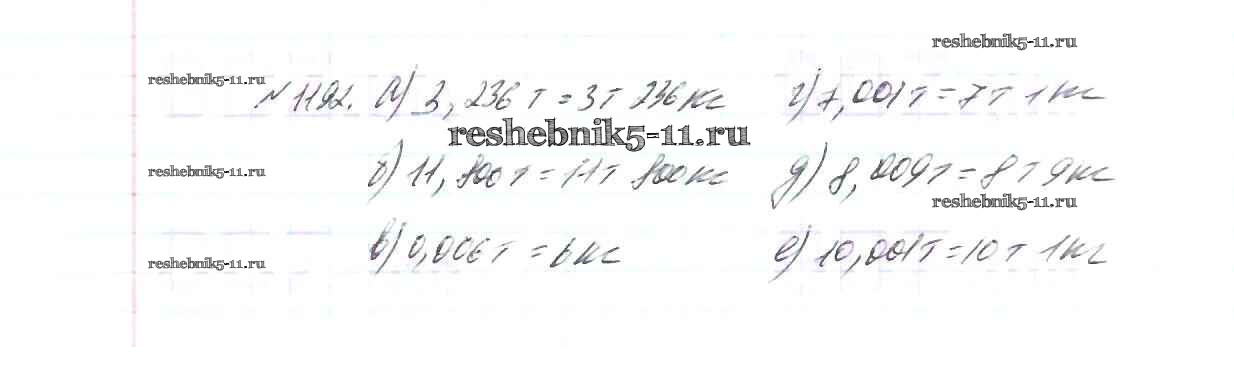 reshebnik5-11.ru
reshebnik5-11.ru
№ 1192. а) 3,236 т = 3 т 236 кг г) 7,001 т = 7 т 1 кг
reshebnik5-11.ru
б) 11,800 т = 11 т 800 кг д) 8,009 т = 8 т 9 кг
reshebnik5-11.ru
reshebnik5-11.ru
в) 0,006 т = 6 кг е) 10,001 т = 10 т 1 кг
reshebnik5-11.ru